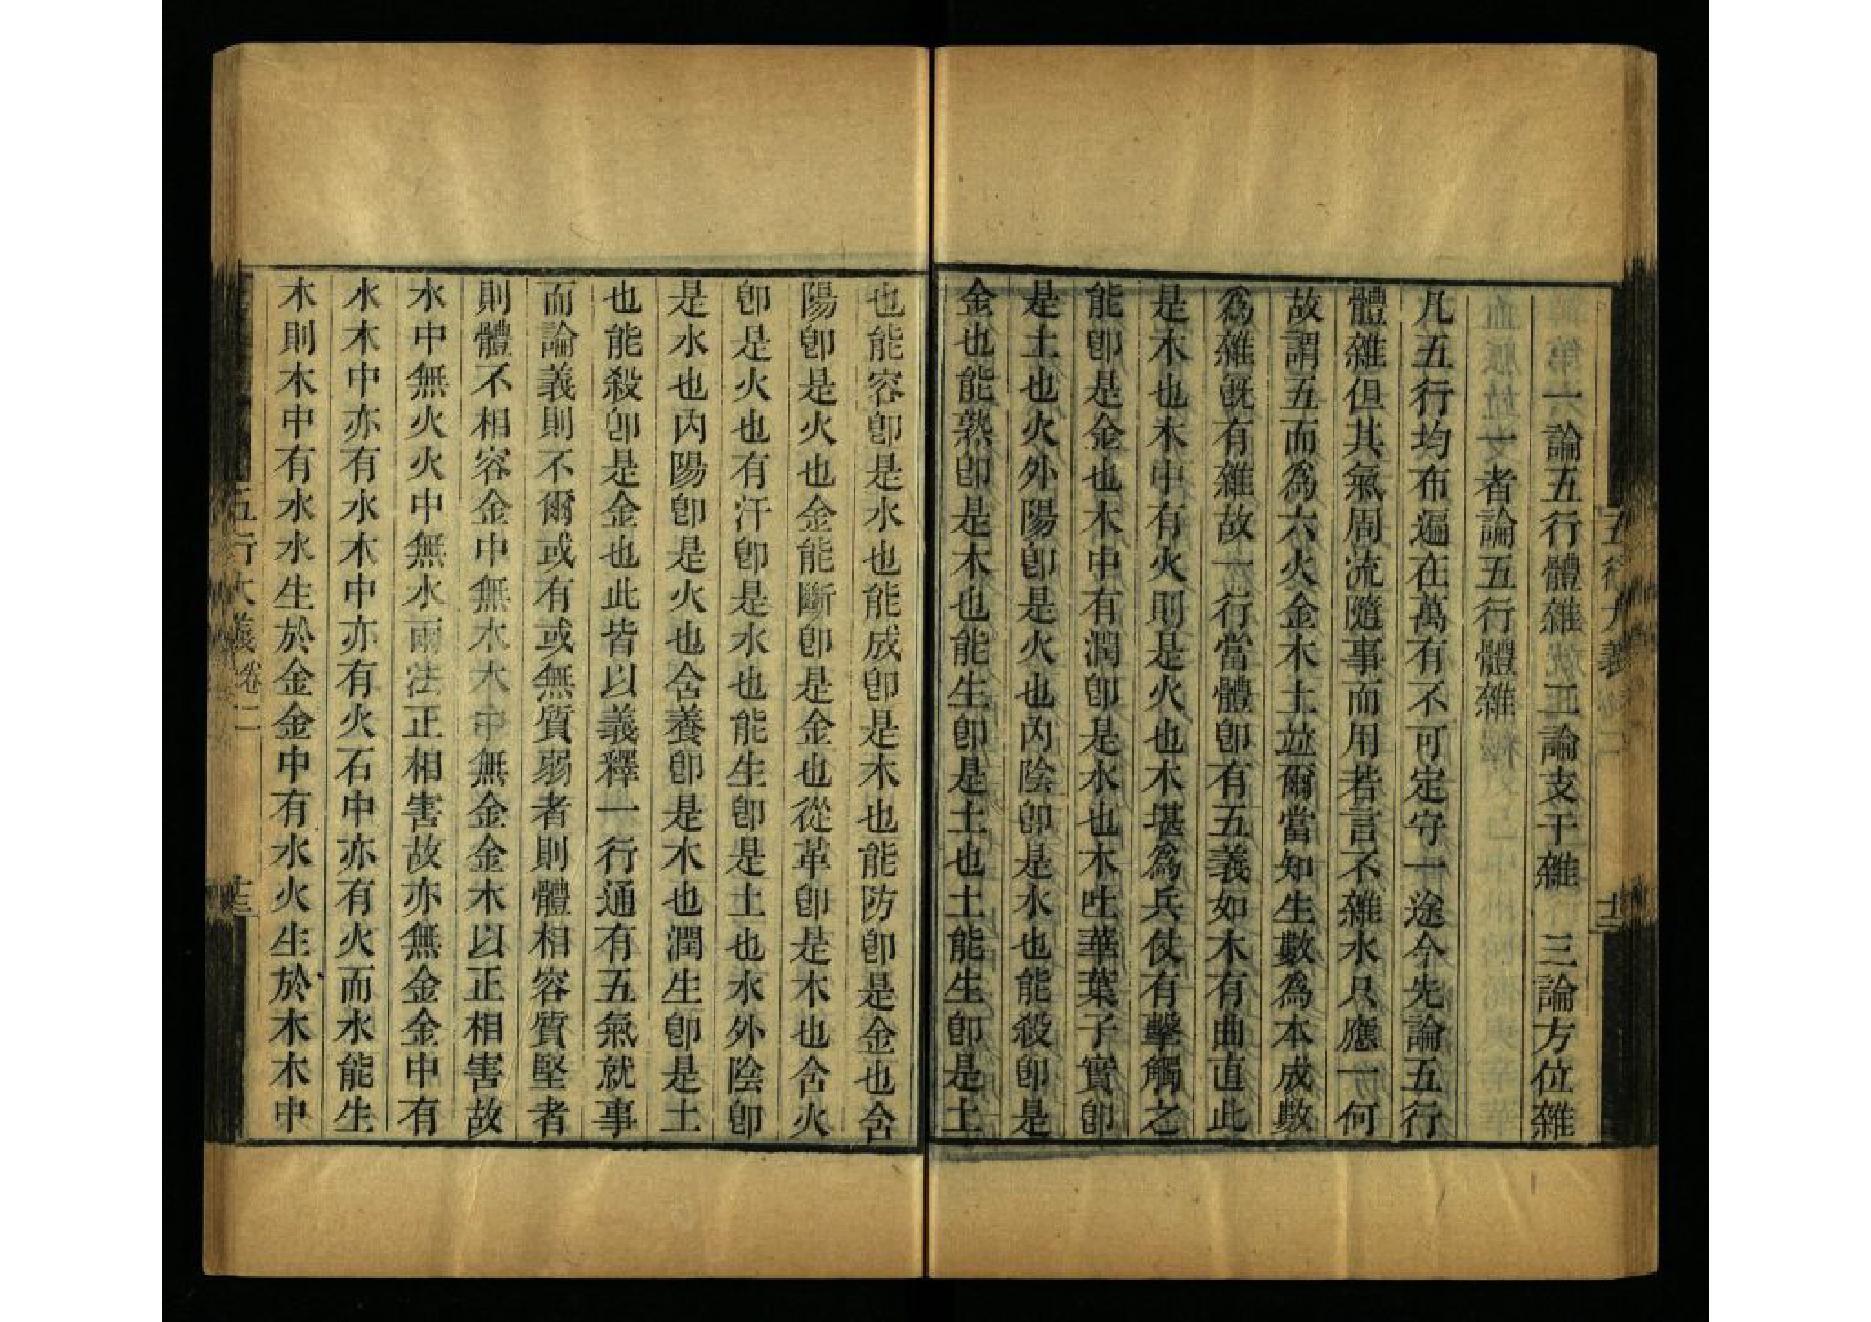 一論五行體雜　二論支干雜　三論方位雜
一者論五行體雜
凡五行均布遍在萬有不可定守一途今先論五行
體雜但其氣周流隨事而用若言不雜水只應一何
故謂五而為六火金木土竝爾當知生數為本成數
為雜既有雜故一行當體即有五義如木有曲直此
是木也木中有火則是火也木堪為兵仗有擊觸之
能即是金也木中有潤即是水也木吐華葉子實即
是土也火外陽即是火也內陰即是水也能殺即是
金也能熟即是木也能生即是土也土能生即是土
也能容即是水也能成即是木也能防即是金也含
陽即是火也金能斷即是金也從革即是木也含火
即是火也有汗即是水也能生即是土也水外陰即
是水也內陽即是火也含養即是木也潤生即是土
也能殺即是金也此皆以義釋一行通有五氣就事
而論義則不爾或有或無質弱者則體相容質堅者
則體不相容金中無木木中無金金木以正相害故
水中無火火中無水兩法正相害故亦無金金中有
水木中亦有水木中亦有火石中亦有火而水能生
木則木中有水水生於金金中有水火生於木木中
五行大義
卷二
十三